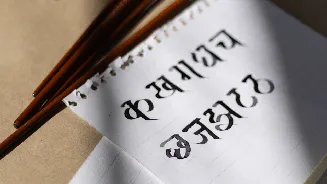 क ख ग घ च
छ ज झ ट ठ